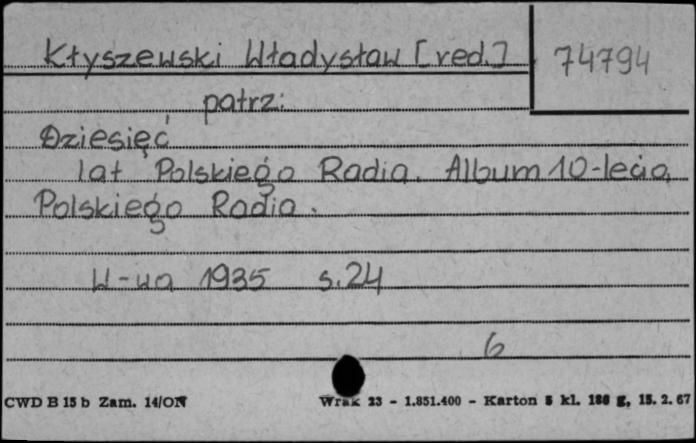 Kłyszewski Władysław [red.]
74794
patrz:
Dziesięć
lat Polskiego Radia. Album 10-lecia
Polskiego Radia.
W-wa 1935 s.24
6
CWD B 15 b Zam. 14/ON
Wrak 23 - 1.851.400 - Karton 5 kl. 180 g, 15. 2. 67